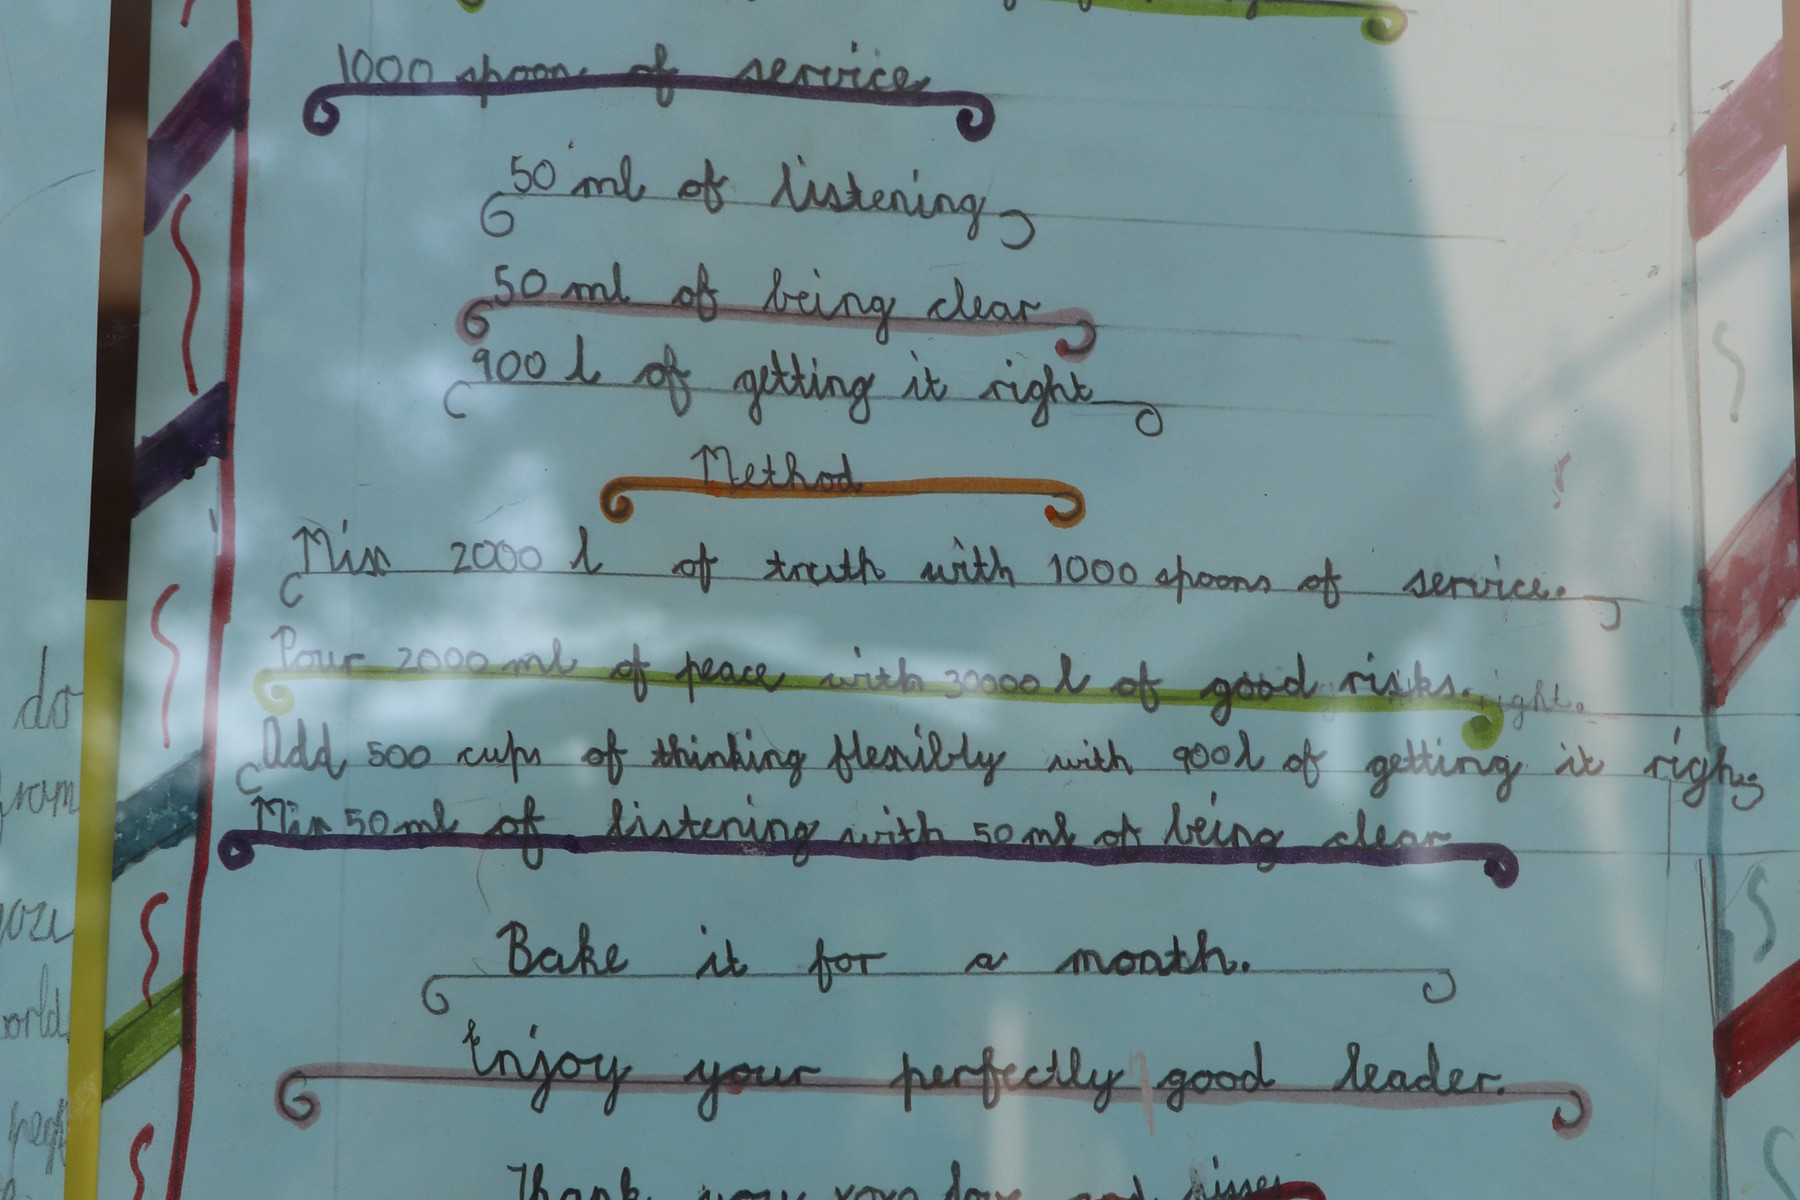 1000 spoons of service
50 ml of listening
50 ml of being clear
900 l of getting it right
Method
Mix 2000 l of truth with 1000 spoons of service.
Pour 2000 ml of peace with 30000 l of good risks. right.
Add 500 cups of thinking flexibly with 900 l of getting it right
Mix 50 ml of listening with 50 ml of being clear
Bake it for a month.
Enjoy your perfectly good leader.
Thank you
do